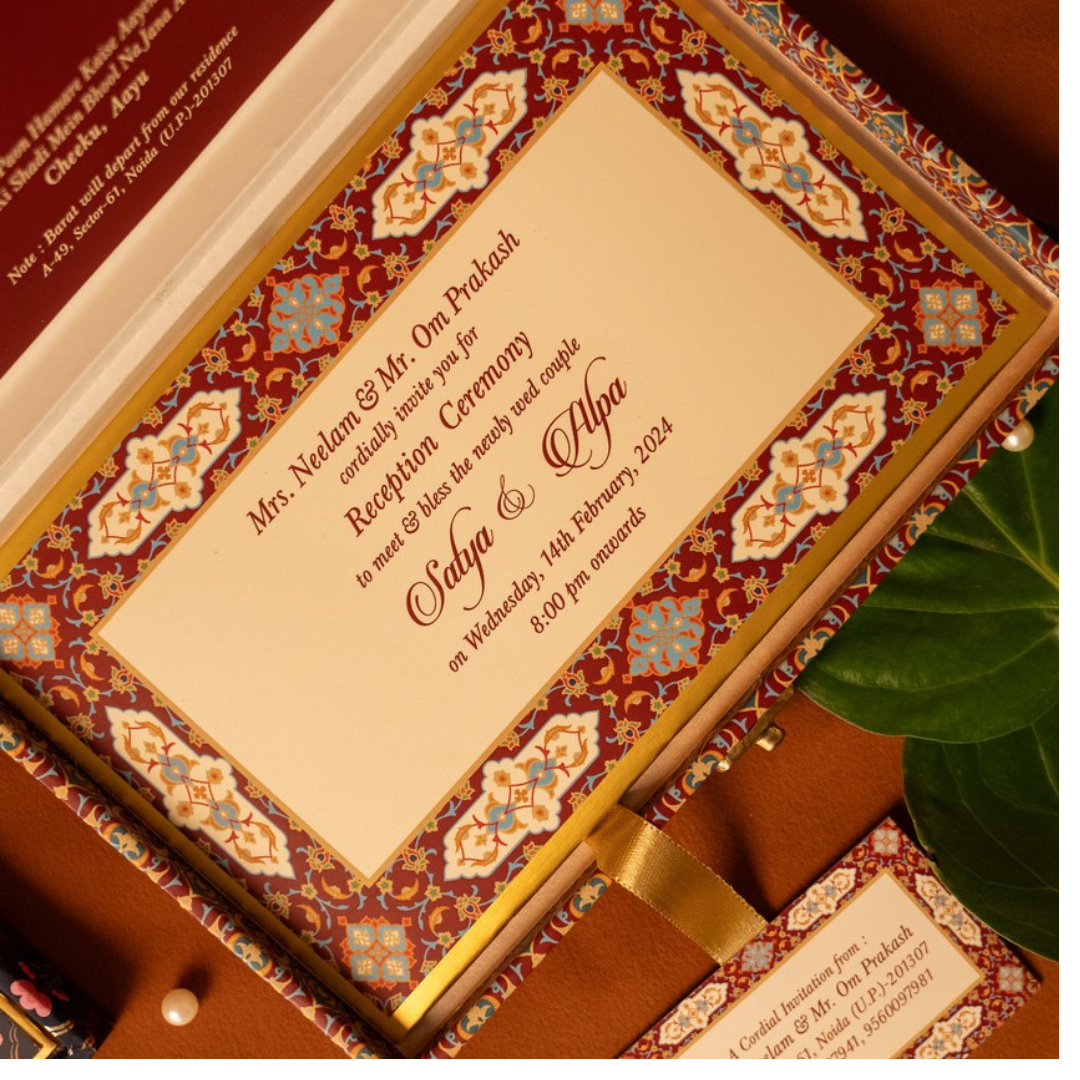 Paon Hamare Kaise Aayen
Ki Shadi Mein Bhool Na Jana A
Cheeku, Aayu
Note : Barat will depart from our residence
A-49, Sector-61, Noida (U.P.)-201307
Mrs. Neelam & Mr. Om Prakash
cordially invite you for
Reception Ceremony
to meet & bless the newly wed couple
Satya & Alpa
on Wednesday, 14th February, 2024
8:00 pm onwards
A Cordial Invitation from :
eelam & Mr. Om Prakash
61, Noida (U.P.)-201307
7941, 9560097981